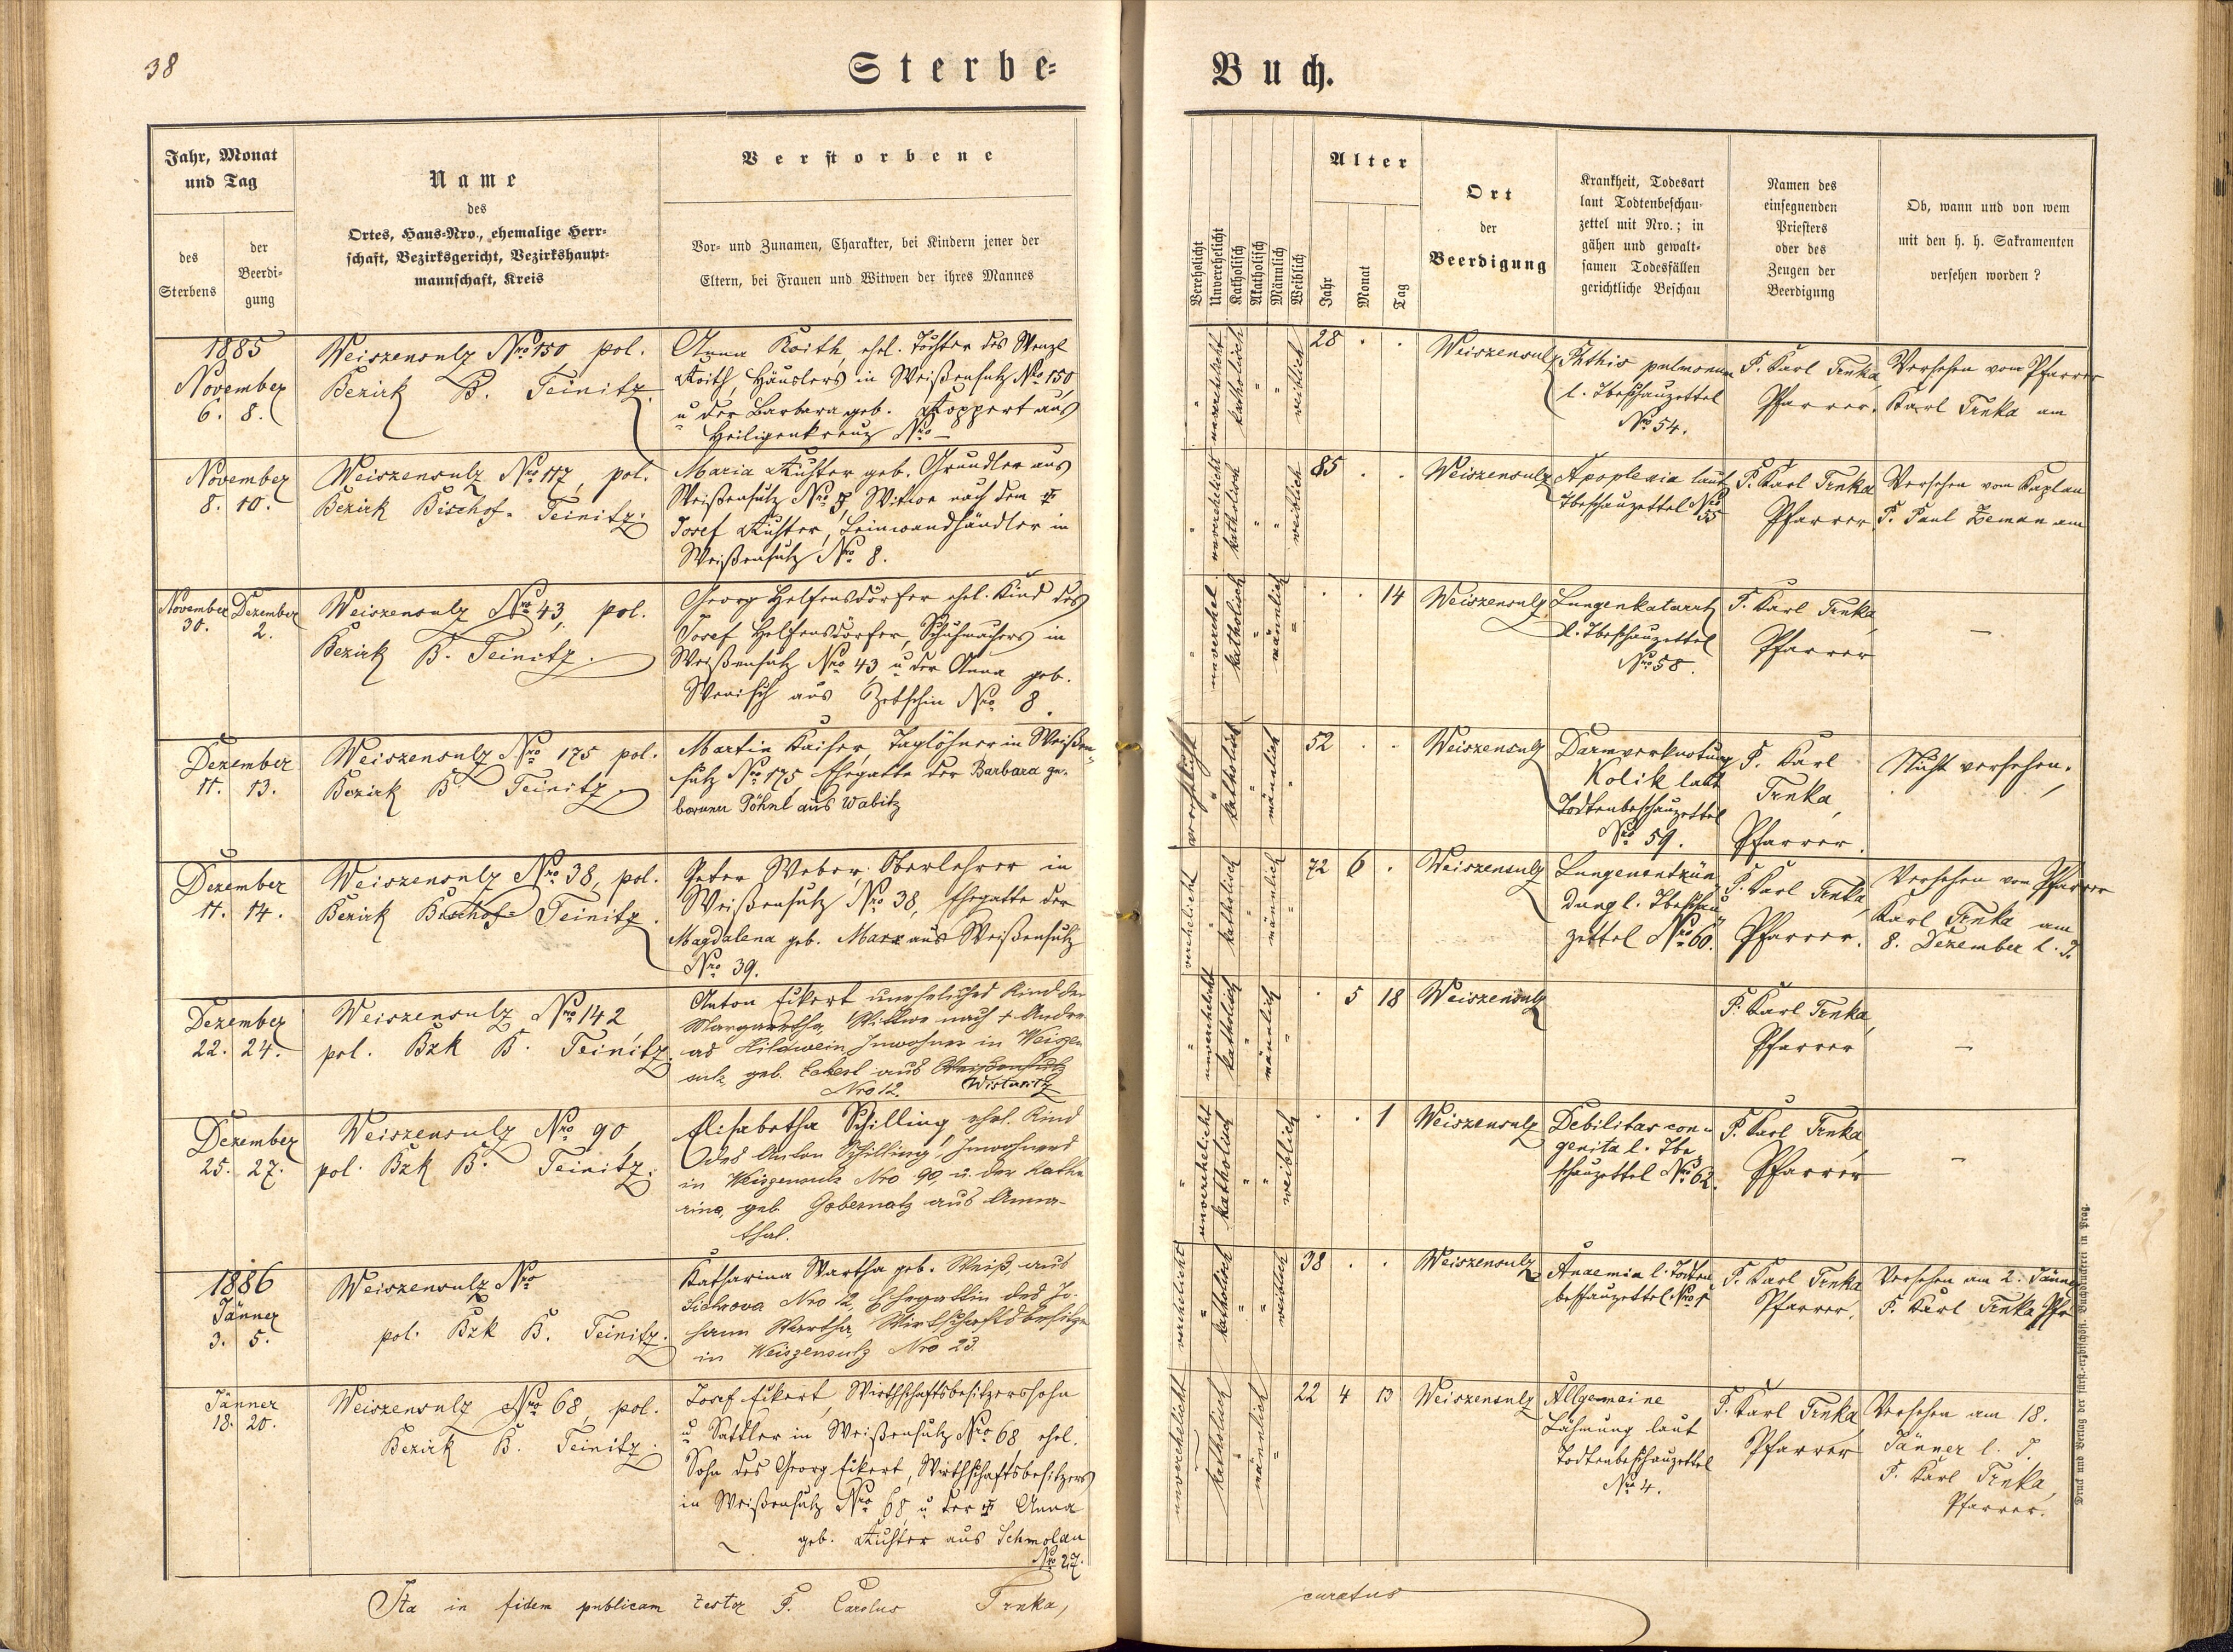 38
Sterbe-
Buch.
Jahr, Monat
und Tag
des
Sterbens
der
Beerdi-
gung
Name
des
Ortes, Haus-Nro., ehemalige Herr-
schaft, Bezirksgericht, Bezirkshaupt-
mannschaft, Kreis
Verstorbene
Vor- und Zunamen, Charakter, bei Kindern jener der
Eltern, bei Frauen und Witwen der ihres Mannes
Verehelicht
Unverehelicht
Katholisch
Akatholisch
Männlich
Weiblich
Alter
Jahr
Monat
Tag
Ort
der
Beerdigung
Krankheit, Todesart
laut Todtenbeschau-
zettel mit Nro.; in
gähen und gewalt-
samen Todesfällen
gerichtliche Beschau
Namen des
einsegnenden
Priesters
oder des
Zeugen der
Beerdigung
Ob, wann und von wem
mit den h. h. Sakramenten
versehen worden?
1885
November
6. 8.
Weiszensulz Nro 150, pol.
Bezirk B. Teinitz.
Anna Roith, ehel. Tochter des Wenzl
Roith, Häuslers in Weißensulz Nro 150
u der Barbara geb. Koppert aus
Heiligenkreuz Nro –
" unverehelicht katholisch " " weiblich
28 . .
Weiszensulz
Phthis pulmonum
l. Tbeschauzettel
Nro 54.
P. Karl Trnka,
Pfarrer.
Versehen vom Pfarrer
Karl Trnka am
November
8. 10.
Weiszensulz Nro 117, pol.
Bezirk Bischof-Teinitz.
Maria Richter geb. Gründler aus
Weißensulz Nro 5, Witwe nach dem †
Josef Richter, Leinwandhändler in
Weißensulz Nro 8.
" katholisch " " weiblich
85 . .
Weiszensulz
Apoplexia laut
Tbeschauzettel Nro
55
P. Karl Trnka
Pfarrer.
Versehen vom Kaplan
P. Paul Zeman am
November Dezember
30. 2.
Weiszensulz Nro 43, pol.
Bezirk B. Teinitz.
Georg Helfensdörfer ehel. Kind des
Josef Helfensdörfer, Schuhmachers in
Weißensulz Nro 43 u der Anna geb.
aus Zetschin Nro 8.
" unverehel. katholisch " männlich "
. . 14
Weiszensulz
Lungenkatarrh
l. Tbeschauzettel
Nro 58.
P. Karl Trnka,
Pfarrer
–
Dezember
11. 13.
Weiszensulz Nro 175 pol.
Bezirk B. Teinitz.
Martin Kaiser, Taglöhner in Weißen-
sulz Nro 175 Ehegatte der Barbara ge-
bornen Pöhnl aus Wabitz
verehelicht " katholisch " männlich "
52 . .
Weiszensulz
Darmverknotung
Kolik laut
Todtenbeschauzettel
Nro 59.
P. Karl
Trnka,
Pfarrer.
Nicht versehen.
Dezember
11. 14.
Weiszensulz Nro 38, pol.
Bezirk Bischof-Teinitz.
Peter Weber, Oberlehrer in
Weißensulz Nro 38, Ehegatte der
Magdalena geb. Marx aus Weißensulz
Nro 39.
verehelicht " katholisch " männlich "
72 6 .
Weiszensulz
Lungenentzün
dung l. Tbeschau
zettel Nro 60.
P. Karl Trnka,
Pfarrer.
Versehen von Pfarrer
Karl Trnka am
8. Dezember l. J.
Dezember
22. 24.
Weiszensulz Nro 142
pol. Bzk B. Teinitz.
Anton Eikert uneheliches Kind der
Margaretha, Wittwe nach † Andre
as Hildwein Inwohner in Weiszen
sulz geb. Eckerl aus Weißensulz
Nro 12. Wistanitz
" unverehelicht katholisch " männlich "
. 5 18
Weiszensulz
P. Karl Trnka,
Pfarrer
–
Dezember
25. 27.
Weiszensulz Nro 90,
pol. Bzk B. Teinitz.
Elisabetha Schilling, ehel. Kind
des Anton Schilling, Inwohners
in Weiszensulz Nro 90, u. der Katha
rina, geb. Gobernatz aus Anna-
thal.
" unverehelicht katholisch " " weiblich
. . 1
Weiszensulz
Debilitas con-
genita l. Tbe-
schauzettel Nro 62.
P. Karl Trnka,
Pfarrer
–
1886
Jänner
3. 5.
Weiszensulz Nro
pol. Bzk B. Teinitz.
Katharina Wartha geb. Weiß, aus
Sichrova Nro 12, Ehegattin des Jo-
hann Wartha, Wirthschaftsbesitzer
in Weiszensulz Nro 23.
verehelicht " katholisch " " weiblich
38 . .
Weiszensulz
Anaemia l. Todten
beschauzettel Nro 1
P. Karl Trnka
Pfarrer.
Versehen am 2. Jänner
P. Karl Trnka Pfr
Jänner
18. 20.
Weiszensulz Nro 68, pol.
Bezirk B. Teinitz.
Josef Eikert, Wirthschaftsbesitzerssohn
u Sattler in Weißensulz Nro 68, ehel.
Sohn des Georg Eikert, Wirthschaftsbesitzers
in Weißensulz Nro 68, u der † Anna
geb. Richter aus Schmolau
Nro 27.
unverehelicht katholisch " männlich "
22 4 13
Weiszensulz
Allgemeine
Lähmung laut
Todtenbeschauzettel
Nro 4.
P. Karl Trnka,
Pfarrer
Versehen am 18.
Jänner l. J.
P. Karl Trnka,
Pfarrer.
Ita in fidem publicam testor P. Carolus Trnka,
curatus
Druck und Verlag der fürst-erzbischöfl. Buchdruckerei in Prag.